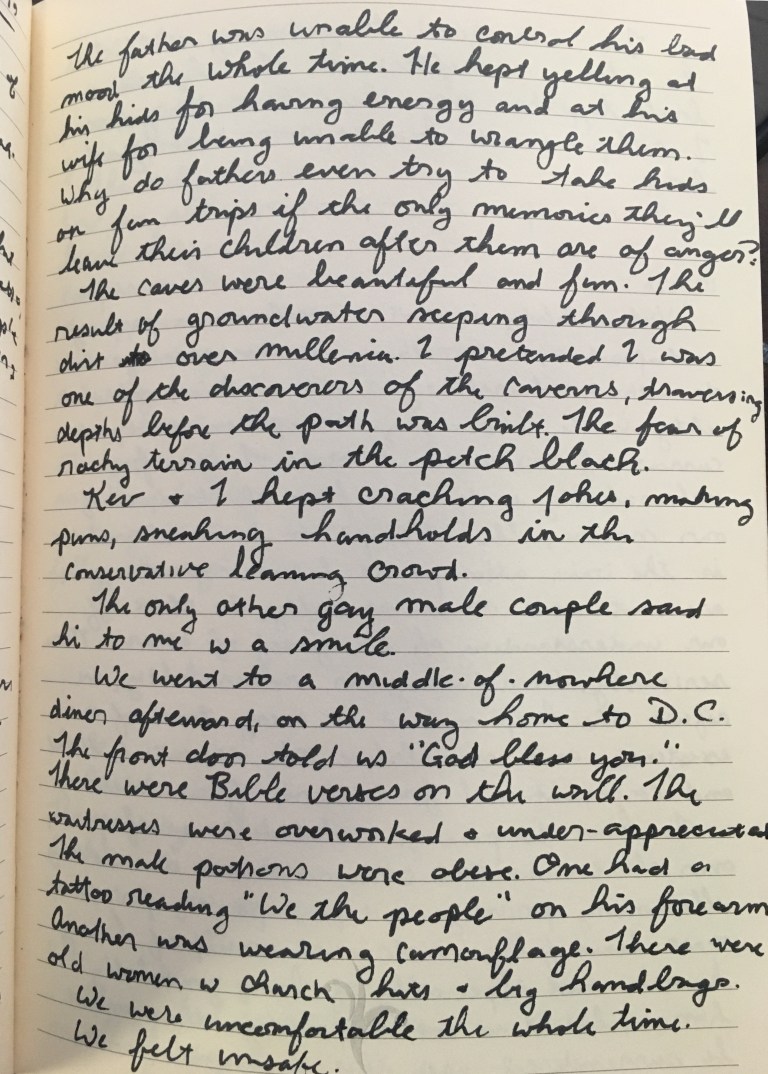 The father was unable to control his bad
mood the whole time. He kept yelling at
his kids for having energy and at his
wife for being unable to wrangle them.
Why do fathers even try to take kids
on fun trips if the only memories they'll
leave their children after them are of anger?
The caves were beautiful and fun. The
result of groundwater seeping through
dirt over millenia. I pretended I was
one of the discoverers of the caverns, traversing
depths before the path was built. The fear of
rocky terrain in the pitch black.
Kev + I kept cracking jokes, making
puns, sneaking handholds in the
conservative leaning crowd.
The only other gay male couple said
hi to me w a smile.
We went to a middle-of-nowhere
diner afterward, on the way home to D.C.
The front door told us "God bless you."
There were Bible verses on the wall. The
waitresses were overworked + under-appreciated
The male patrons were obese. One had a
tattoo reading "We the people" on his forearm
Another was wearing camouflage. There were
old women w church hats + big handbags.
We were uncomfortable the whole time.
We felt unsafe.